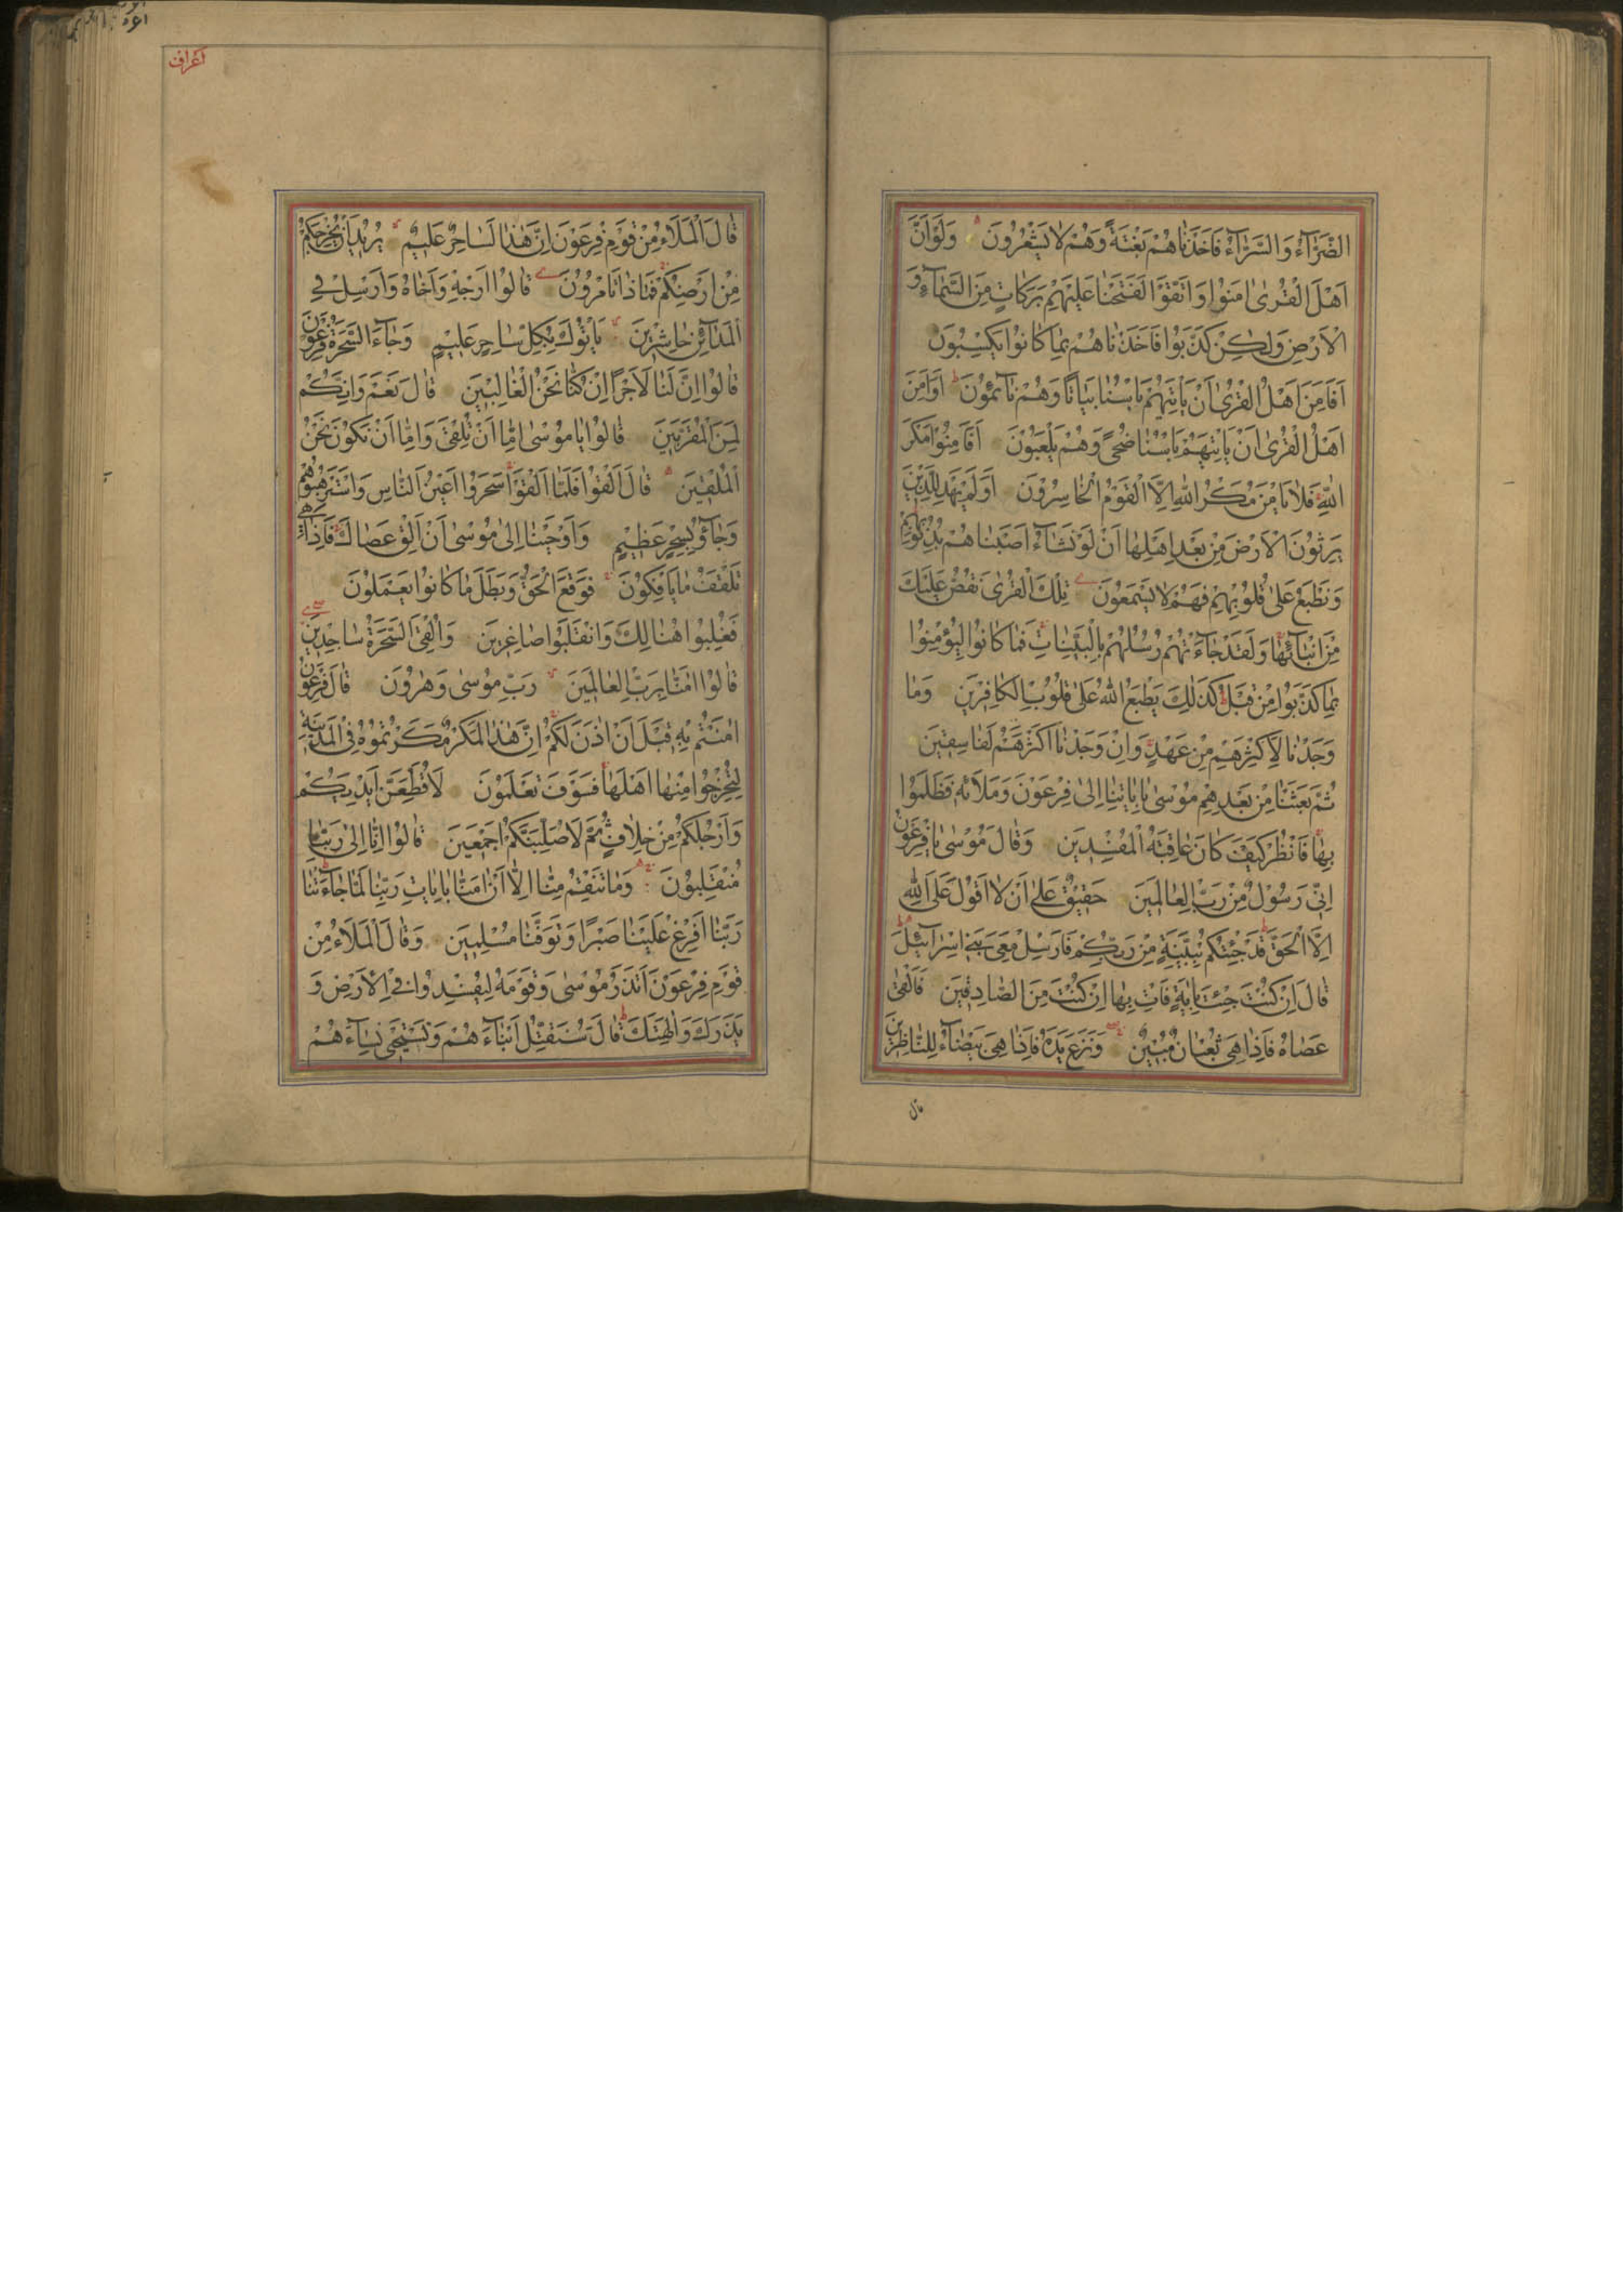 الضَّرَّآءُ وَالسَّرَّآءُ فَاَخَذْنَاهُمْ بَغْتَةً وَهُمْ لَا يَشْعُرُونَ وَلَوْ اَنَّ
اَهْلَ الْقُرٰى اٰمَنُوا وَاتَّقَوْا لَفَتَحْنَا عَلَيْهِمْ بَرَكَاتٍ مِنَ السَّمَآءِ وَ
الْاَرْضِ وَلٰكِنْ كَذَّبُوا فَاَخَذْنَاهُمْ بِمَا كَانُوا يَكْسِبُونَ
اَفَاَمِنَ اَهْلُ الْقُرٰى اَنْ يَاْتِيَهُمْ بَاْسُنَا بَيَاتًا وَهُمْ نَآئِمُونَ اَوَاَمِنَ
اَهْلُ الْقُرٰى اَنْ يَاْتِيَهُمْ بَاْسُنَا ضُحًى وَهُمْ يَلْعَبُونَ اَفَاَمِنُوا مَكْرَ
اللّٰهِ فَلَا يَاْمَنُ مَكْرَ اللّٰهِ اِلَّا الْقَوْمُ الْخَاسِرُونَ اَوَلَمْ يَهْدِ لِلَّذِينَ
يَرِثُونَ الْاَرْضَ مِنْ بَعْدِ اَهْلِهَا اَنْ لَوْ نَشَآءُ اَصَبْنَاهُمْ بِذُنُوبِهِمْ
وَنَطْبَعُ عَلٰى قُلُوبِهِمْ فَهُمْ لَا يَسْمَعُونَ تِلْكَ الْقُرٰى نَقُصُّ عَلَيْكَ
مِنْ اَنْبَآئِهَا وَلَقَدْ جَآءَتْهُمْ رُسُلُهُمْ بِالْبَيِّنَاتِ فَمَا كَانُوا لِيُؤْمِنُوا
بِمَا كَذَّبُوا مِنْ قَبْلُ كَذٰلِكَ يَطْبَعُ اللّٰهُ عَلٰى قُلُوبِ الْكَافِرِينَ وَمَا
وَجَدْنَا لِاَكْثَرِهِمْ مِنْ عَهْدٍ وَاِنْ وَجَدْنَا اَكْثَرَهُمْ لَفَاسِقِينَ
ثُمَّ بَعَثْنَا مِنْ بَعْدِهِمْ مُوسٰى بِاٰيَاتِنَا اِلٰى فِرْعَوْنَ وَمَلَائِهِ فَظَلَمُوا
بِهَا فَانْظُرْ كَيْفَ كَانَ عَاقِبَةُ الْمُفْسِدِينَ وَقَالَ مُوسٰى يَا فِرْعَوْنُ
اِنِّي رَسُولٌ مِنْ رَبِّ الْعَالَمِينَ حَقِيقٌ عَلٰى اَنْ لَا اَقُولَ عَلَى اللّٰهِ
اِلَّا الْحَقَّ قَدْ جِئْتُكُمْ بِبَيِّنَةٍ مِنْ رَبِّكُمْ فَاَرْسِلْ مَعِيَ بَنِي اِسْرَآئِيلَ
قَالَ اِنْ كُنْتَ جِئْتَ بِاٰيَةٍ فَاْتِ بِهَا اِنْ كُنْتَ مِنَ الصَّادِقِينَ فَاَلْقٰى
عَصَاهُ فَاِذَا هِيَ ثُعْبَانٌ مُبِينٌ وَنَزَعَ يَدَهُ فَاِذَا هِيَ بَيْضَآءُ لِلنَّاظِرِينَ
قال
اعراف
قَالَ الْمَلَاءُ مِنْ قَوْمِ فِرْعَوْنَ اِنَّ هٰذَا لَسَاحِرٌ عَلِيمٌ يُرِيدُ اَنْ يُخْرِجَكُمْ
مِنْ اَرْضِكُمْ فَمَاذَا تَاْمُرُونَ قَالُوا اَرْجِهْ وَاَخَاهُ وَاَرْسِلْ فِي
الْمَدَآئِنِ حَاشِرِينَ يَاْتُوكَ بِكُلِّ سَاحِرٍ عَلِيمٍ وَجَآءَ السَّحَرَةُ فِرْعَوْنَ
قَالُوا اِنَّ لَنَا لَاَجْرًا اِنْ كُنَّا نَحْنُ الْغَالِبِينَ قَالَ نَعَمْ وَاِنَّكُمْ
لَمِنَ الْمُقَرَّبِينَ قَالُوا يَا مُوسٰى اِمَّا اَنْ تُلْقِيَ وَاِمَّا اَنْ نَكُونَ نَحْنُ
الْمُلْقِينَ قَالَ اَلْقُوا فَلَمَّا اَلْقَوْا سَحَرُوا اَعْيُنَ النَّاسِ وَاسْتَرْهَبُوهُمْ
وَجَآؤُ بِسِحْرٍ عَظِيمٍ وَاَوْحَيْنَا اِلٰى مُوسٰى اَنْ اَلْقِ عَصَاكَ فَاِذَا هِيَ
تَلْقَفُ مَا يَاْفِكُونَ فَوَقَعَ الْحَقُّ وَبَطَلَ مَا كَانُوا يَعْمَلُونَ
فَغُلِبُوا هُنَالِكَ وَانْقَلَبُوا صَاغِرِينَ وَاُلْقِيَ السَّحَرَةُ سَاجِدِينَ
قَالُوا اٰمَنَّا بِرَبِّ الْعَالَمِينَ رَبِّ مُوسٰى وَهٰرُونَ قَالَ فِرْعَوْنُ
اٰمَنْتُمْ بِهِ قَبْلَ اَنْ اٰذَنَ لَكُمْ اِنَّ هٰذَا لَمَكْرٌ مَكَرْتُمُوهُ فِي الْمَدِينَةِ
لِتُخْرِجُوا مِنْهَا اَهْلَهَا فَسَوْفَ تَعْلَمُونَ لَاُقَطِّعَنَّ اَيْدِيَكُمْ
وَاَرْجُلَكُمْ مِنْ خِلَافٍ ثُمَّ لَاُصَلِّبَنَّكُمْ اَجْمَعِينَ قَالُوا اِنَّا اِلٰى رَبِّنَا
مُنْقَلِبُونَ وَمَا تَنْقِمُ مِنَّا اِلَّا اَنْ اٰمَنَّا بِاٰيَاتِ رَبِّنَا لَمَّا جَآءَتْنَا
رَبَّنَا اَفْرِغْ عَلَيْنَا صَبْرًا وَتَوَفَّنَا مُسْلِمِينَ وَقَالَ الْمَلَاءُ مِنْ
قَوْمِ فِرْعَوْنَ اَتَذَرُ مُوسٰى وَقَوْمَهُ لِيُفْسِدُوا فِي الْاَرْضِ وَ
يَذَرَكَ وَاٰلِهَتَكَ قَالَ سَنُقَتِّلُ اَبْنَآءَهُمْ وَنَسْتَحْيِي نِسَآءَهُمْ